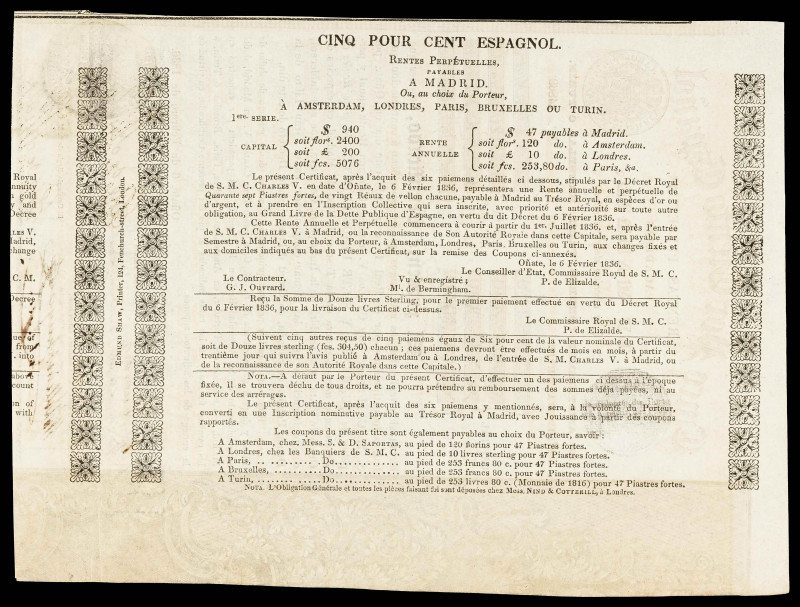 CINQ POUR CENT ESPAGNOL.
RENTES PERPÉTUELLES,
PAYABLES
A MADRID.
Ou, au choix du Porteur,
À AMSTERDAM, LONDRES, PARIS, BRUXELLES OU TURIN.
1ere. SERIE.
CAPITAL
$ 940
soit flors. 2400
soit £ 200
soit fcs. 5076
RENTE ANNUELLE
$ 47 payables à Madrid.
soit flors. 120 do. à Amsterdam.
soit £ 10 do. à Londres.
soit fcs. 253,80 do. à Paris, &a.
Le présent Certificat, après l'acquit des six paiemens détaillés ci dessous, stipulés par le Décret Royal
de S. M. C. CHARLES V. en date d'Oñate, le 6 Février 1836, représentera une Rente annuelle et perpétuelle de
Quarante sept Piastres fortes, de vingt Réaux de vellon chacune, payable à Madrid au Trésor Royal, en espèces d'or ou
d'argent, et à prendre en l'Inscription Collective qui sera inscrite, avec priorité et antériorité sur toute autre
obligation, au Grand Livre de la Dette Publique d'Espagne, en vertu du dit Décret du 6 Février 1836.
Cette Rente Annuelle et Perpétuelle commencera à courir à partir du 1er. Juillet 1836, et, après l'entrée
de S. M. C. CHARLES V. à Madrid, ou la reconnaissance de Son Autorité Royale dans cette Capitale, sera payable par
Semestre à Madrid, ou, au choix du Porteur, à Amsterdam, Londres, Paris, Bruxelles ou Turin, aux changes fixés et
aux domiciles indiqués au bas du présent Certificat, sur la remise des Coupons ci-annexés.
Oñate, le 6 Février 1836.
Le Conseiller d'Etat, Commissaire Royal de S. M. C.
Le Contracteur. Vu & enregistré; P. de Elizalde.
G. J. Ouvrard. Mis. de Bermingham.
Reçu la Somme de Douze livres Sterling, pour le premier paiement effectué en vertu du Décret Royal
du 6 Février 1836, pour la livraison du Certificat ci-dessus.
Le Commissaire Royal de S. M. C.
P. de Elizalde.
(Suivent cinq autres reçus de cinq paiemens égaux de Six pour cent de la valeur nominale du Certificat,
soit de Douze livres sterling (fcs. 304,50) chacun; ces paiemens devront être effectués de mois en mois, à partir du
trentième jour qui suivra l'avis publié à Amsterdam ou à Londres, de l'entrée de S. M. CHARLES V. à Madrid, ou
de la reconnaissance de son Autorité Royale dans cette Capitale.)
NOTA.—A défaut par le Porteur du présent Certificat, d'effectuer un des paiemens ci dessus à l'époque
fixée, il se trouvera déchu de tous droits, et ne pourra prétendre au remboursement des sommes déjà payées, ni au
service des arrérages.
Le présent Certificat, après l'acquit des six paiemens y mentionnés, sera, à la volonté du Porteur,
converti en une Inscription nominative payable au Trésor Royal à Madrid, avec Jouissance à partir des coupons
rapportés.
Les coupons du présent titre sont également payables au choix du Porteur, savoir:
A Amsterdam, chez, Mess. S. & D. SAPORTAS, au pied de 120 florins pour 47 Piastres fortes.
A Londres, chez les Banquiers de S. M. C. au pied de 10 livres sterling pour 47 Piastres fortes.
A Paris, .. .......... .Do............... au pied de 253 francs 80 c. pour 47 Piastres fortes.
A Bruxelles, ...........Do............... au pied de 253 francs 80 c. pour 47 Piastres fortes.
A Turin, ...............Do............... au pied de 253 livres 80 c. (Monnaie de 1816) pour 47 Piastres fortes.
NOTA. L'Obligation Générale et toutes les pièces faisant foi sont déposées chez Mess. NIND & COTTERILL, à Londres.
EDMUND SHAW, Printer, 124, Fenchurch-street, London.
Royal
nnuity
gold
and
Decree
LES V.
Madrid,
change
C. M.
Decree
ue of
from
into
above
count
on of
with